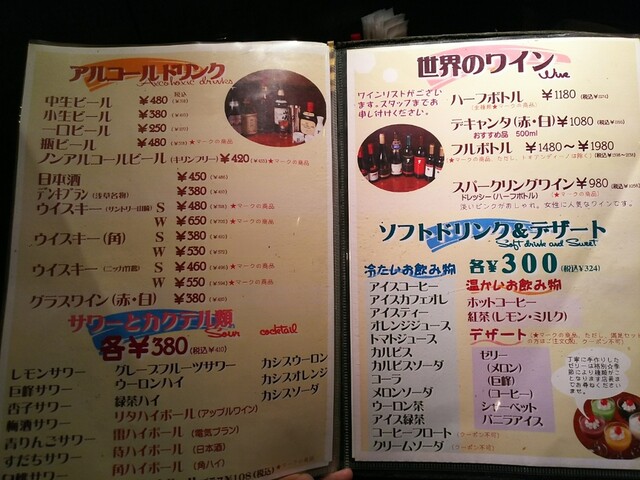 アルコールドリンク
Alcoholic drinks
中生ビール ¥480
小生ビール ¥380
一口ビール ¥250
瓶ビール ¥480 ★マークの商品
ノンアルコールビール(キリンフリー) ¥420 ★マークの商品
日本酒 ¥450
デンキブラン(浅草名物) ¥380
ウイスキー(サントリー山崎) S ¥480 ★マークの商品
W ¥650 ★マークの商品
ウイスキー(角) S ¥380
W ¥530
ウイスキー(ニッカ竹鶴) S ¥460 ★マークの商品
W ¥550 ★マークの商品
グラスワイン(赤・白) ¥380
サワーとカクテル類
Sour cocktail
各¥380(税込¥410)
レモンサワー
巨峰サワー
杏子サワー
梅酒サワー
青りんごサワー
すだちサワー
グレープフルーツサワー
ウーロンハイ
緑茶ハイ
リタハイボール(アップルワイン)
雷ハイボール(電気ブラン)
侍ハイボール(日本酒)
角ハイボール(角ハイ)
カシスウーロン
カシスオレンジ
カシスソーダ
世界のワイン
Wine
ワインリストがござい
ます。スタッフまでお
申し付けください。
ハーフボトル ¥1180
デキャンタ(赤・白) ¥1080
おすすめ品 500ml
フルボトル ¥1480~¥1980
スパークリングワイン ¥980
ドレッシー(ハーフボトル) (★マークの商品)
淡いピンクがおしゃれ。女性に人気なワインです。
ソフトドリンク&デザート
Soft drink and Sweet
冷たいお飲み物 各¥300(税込¥324)
アイスコーヒー
アイスカフェオレ
アイスティー
オレンジジュース
トマトジュース
カルピス
カルピスソーダ
コーラ
メロンソーダ
ウーロン茶
アイス緑茶
コーヒーフロート(クーポン不可)
クリームソーダ(クーポン不可)
温かいお飲み物
ホットコーヒー
紅茶(レモン・ミルク)
デザート
ゼリー
(メロン)
(巨峰)
(コーヒー)
シャーベット
バニラアイス
丁寧に手作りした
ゼリーは格別☆季
節により種類がこ
となります店員ま
でお尋ねくださいませ。